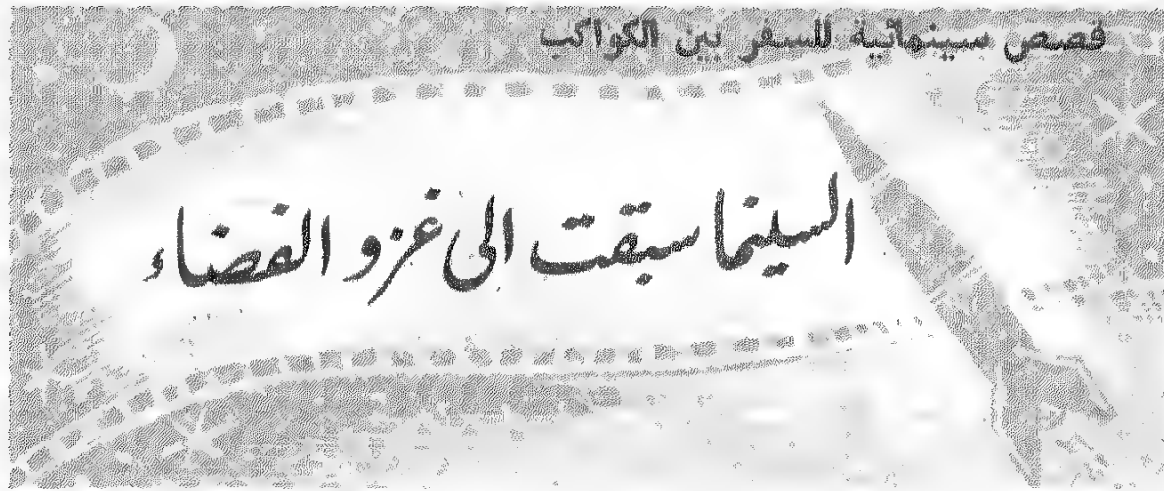 قصص سينمائية للسفر بين الكواكب
السينما سبقت الى غزو الفضاء